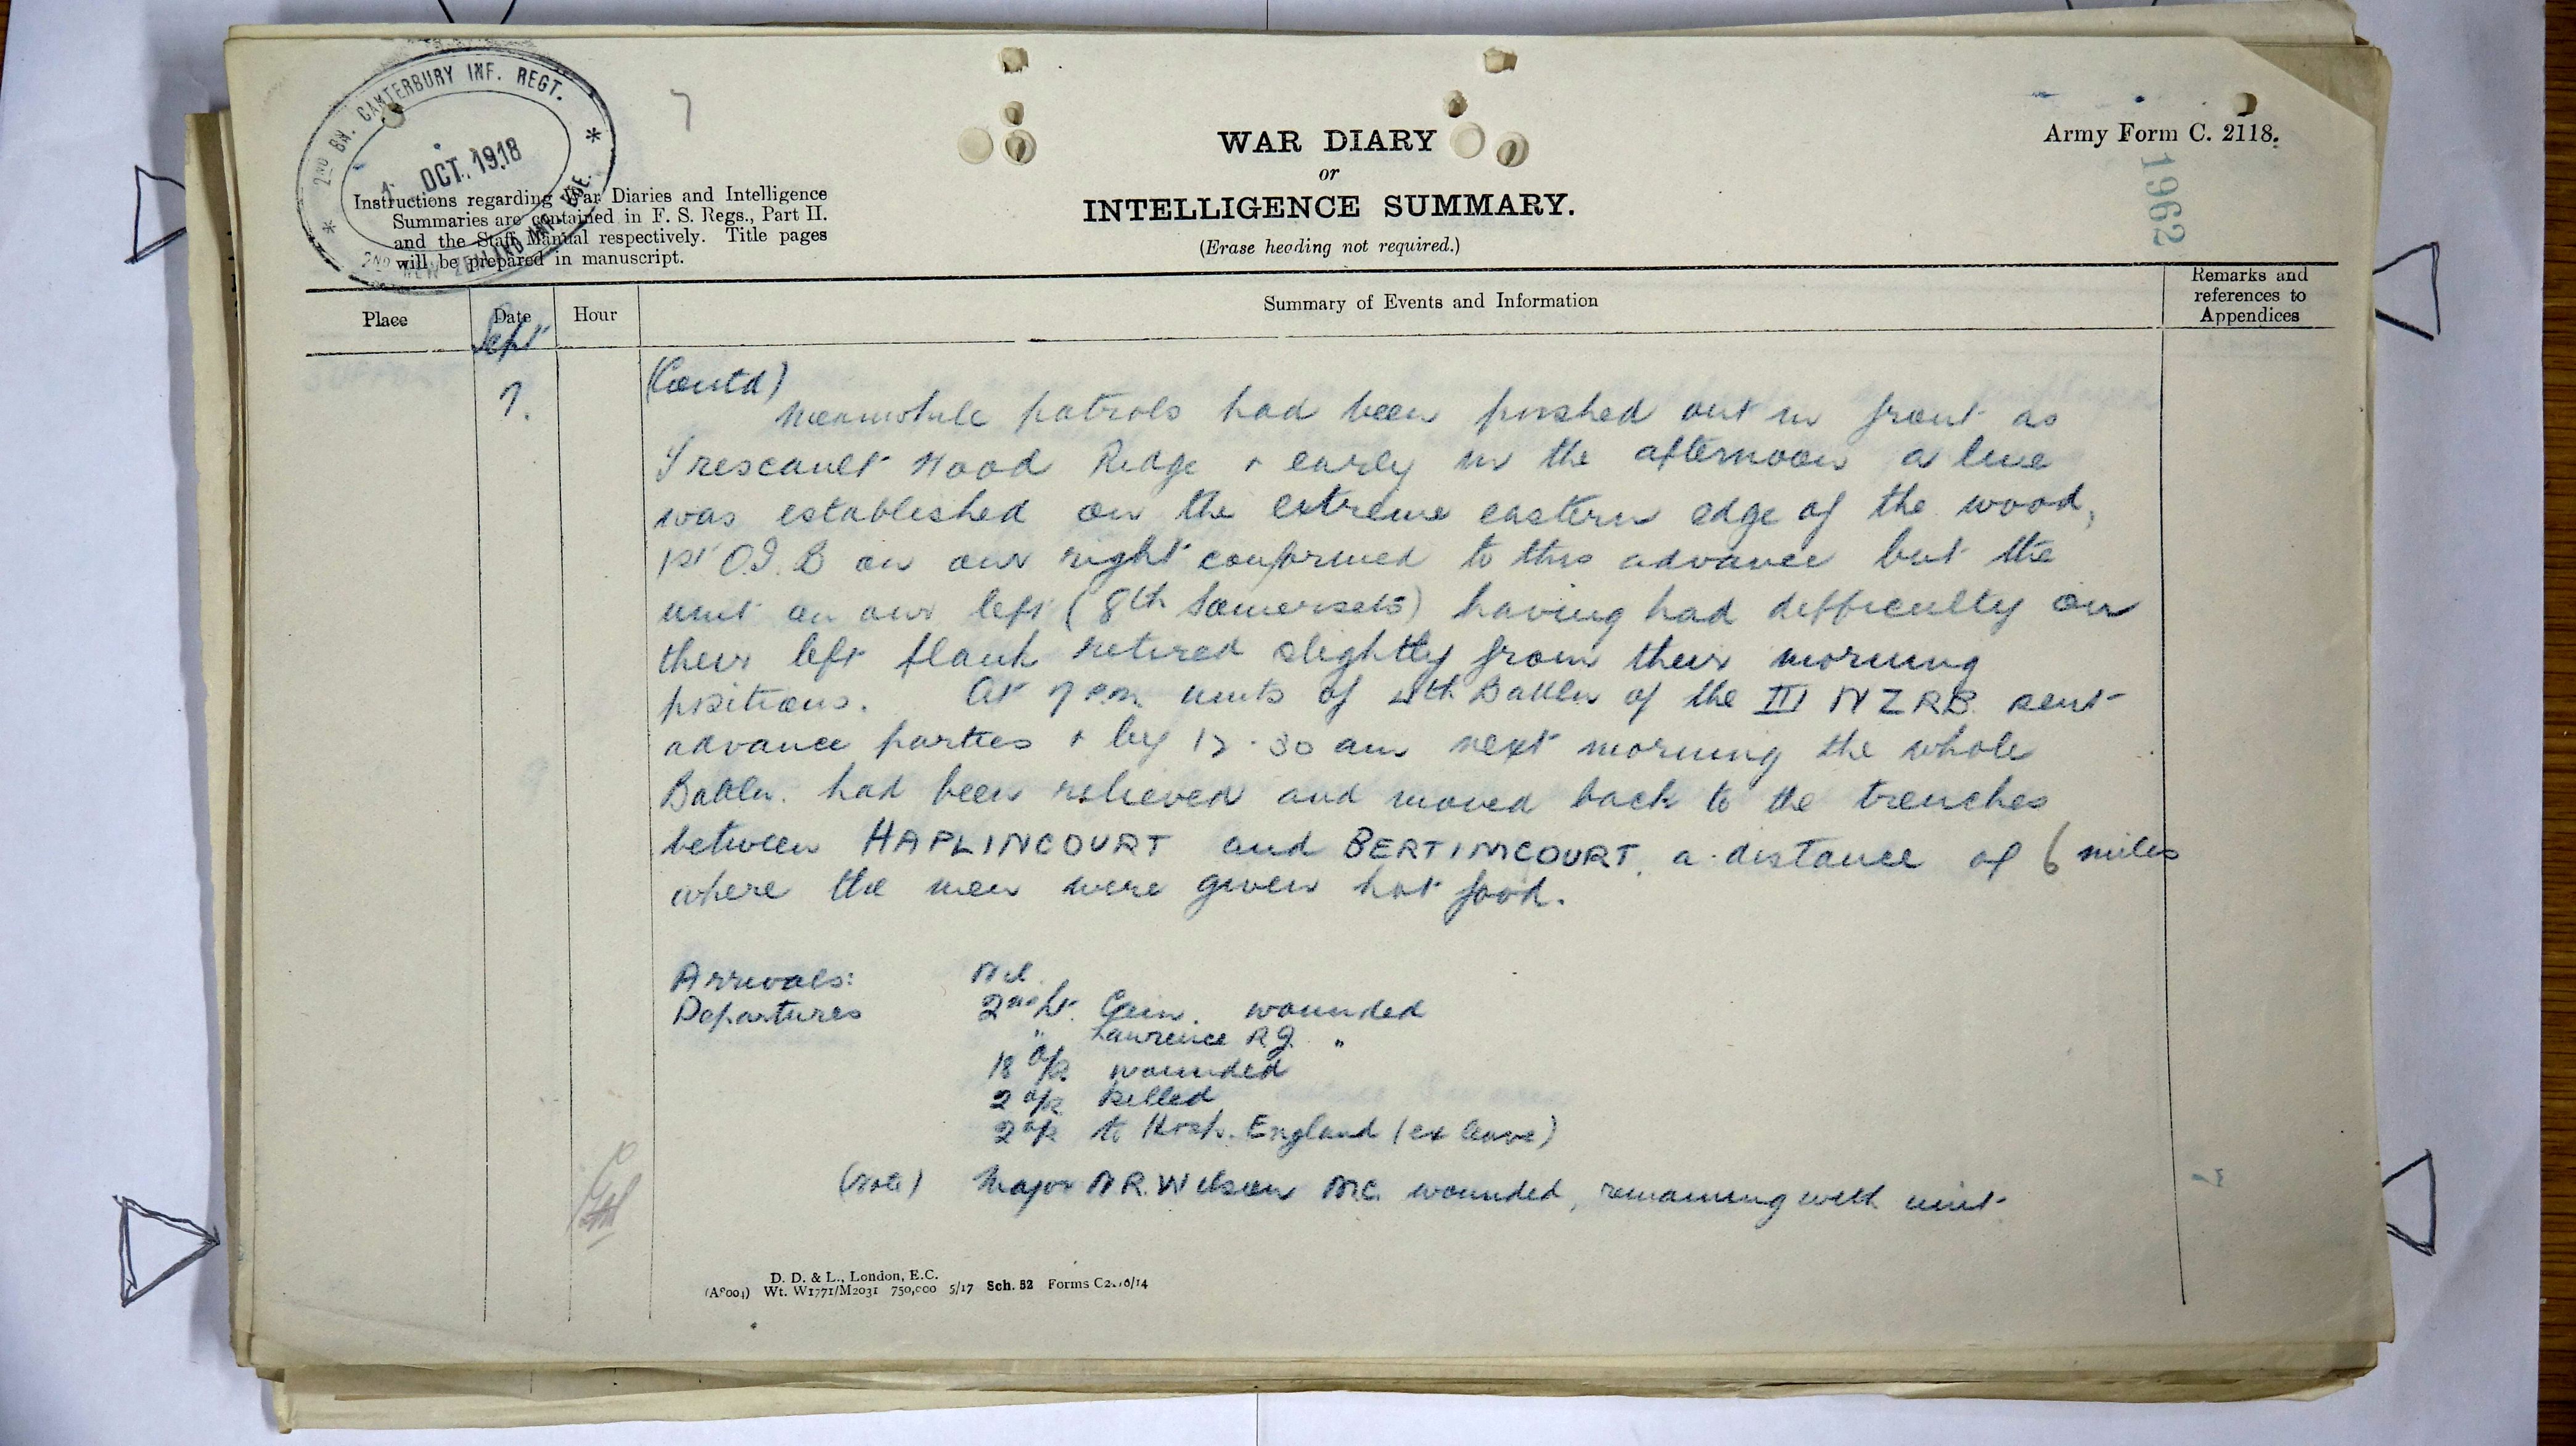 2ND BN. CANTERBURY INF. REGT.
1 OCT. 1918
2ND NEW ZEALAND INF. BDE.
7
WAR DIARY
or
INTELLIGENCE SUMMARY.
(Erase heading not required.)
Army Form C. 2118.
1962
Instructions regarding War Diaries and Intelligence
Summaries are contained in F. S. Regs., Part II.
and the Staff Manual respectively. Title pages
will be prepared in manuscript.
Place
Date
Hour
Summary of Events and Information
Remarks and
references to
Appendices
Sept
7.
(Contd)
Meanwhile patrols had been pushed out in front as
Trescault Wood Ridge + early in the afternoon a line
was established on the extreme eastern edge of the wood,
1st O.I.B on our right conformed to this advance but the
unit on our left (8th Somersets) having had difficulty on
their left flank retired slightly from their morning
positions. At 7 pm units of 4th Battln of the III NZRB sent
advance parties + by 12.30 am next morning the whole
Battln. had been relieved and moved back to the trenches
between HAPLINCOURT and BERTIMCOURT, a distance of 6 miles
where the men were given hot food.
Arrivals: Nil.
Departures 2nd Lt. Cain. wounded
" Lawrence R.J. "
18 O/R wounded
2 O/R killed
2 O/R to Hosp. England (ex leave)
(Note) Major N.R. Wilson M.C. wounded, remaining with unit
D. D. & L., London, E.C.
Wt. W1771/M2031 750,000 5/17 Sch. 52 Forms